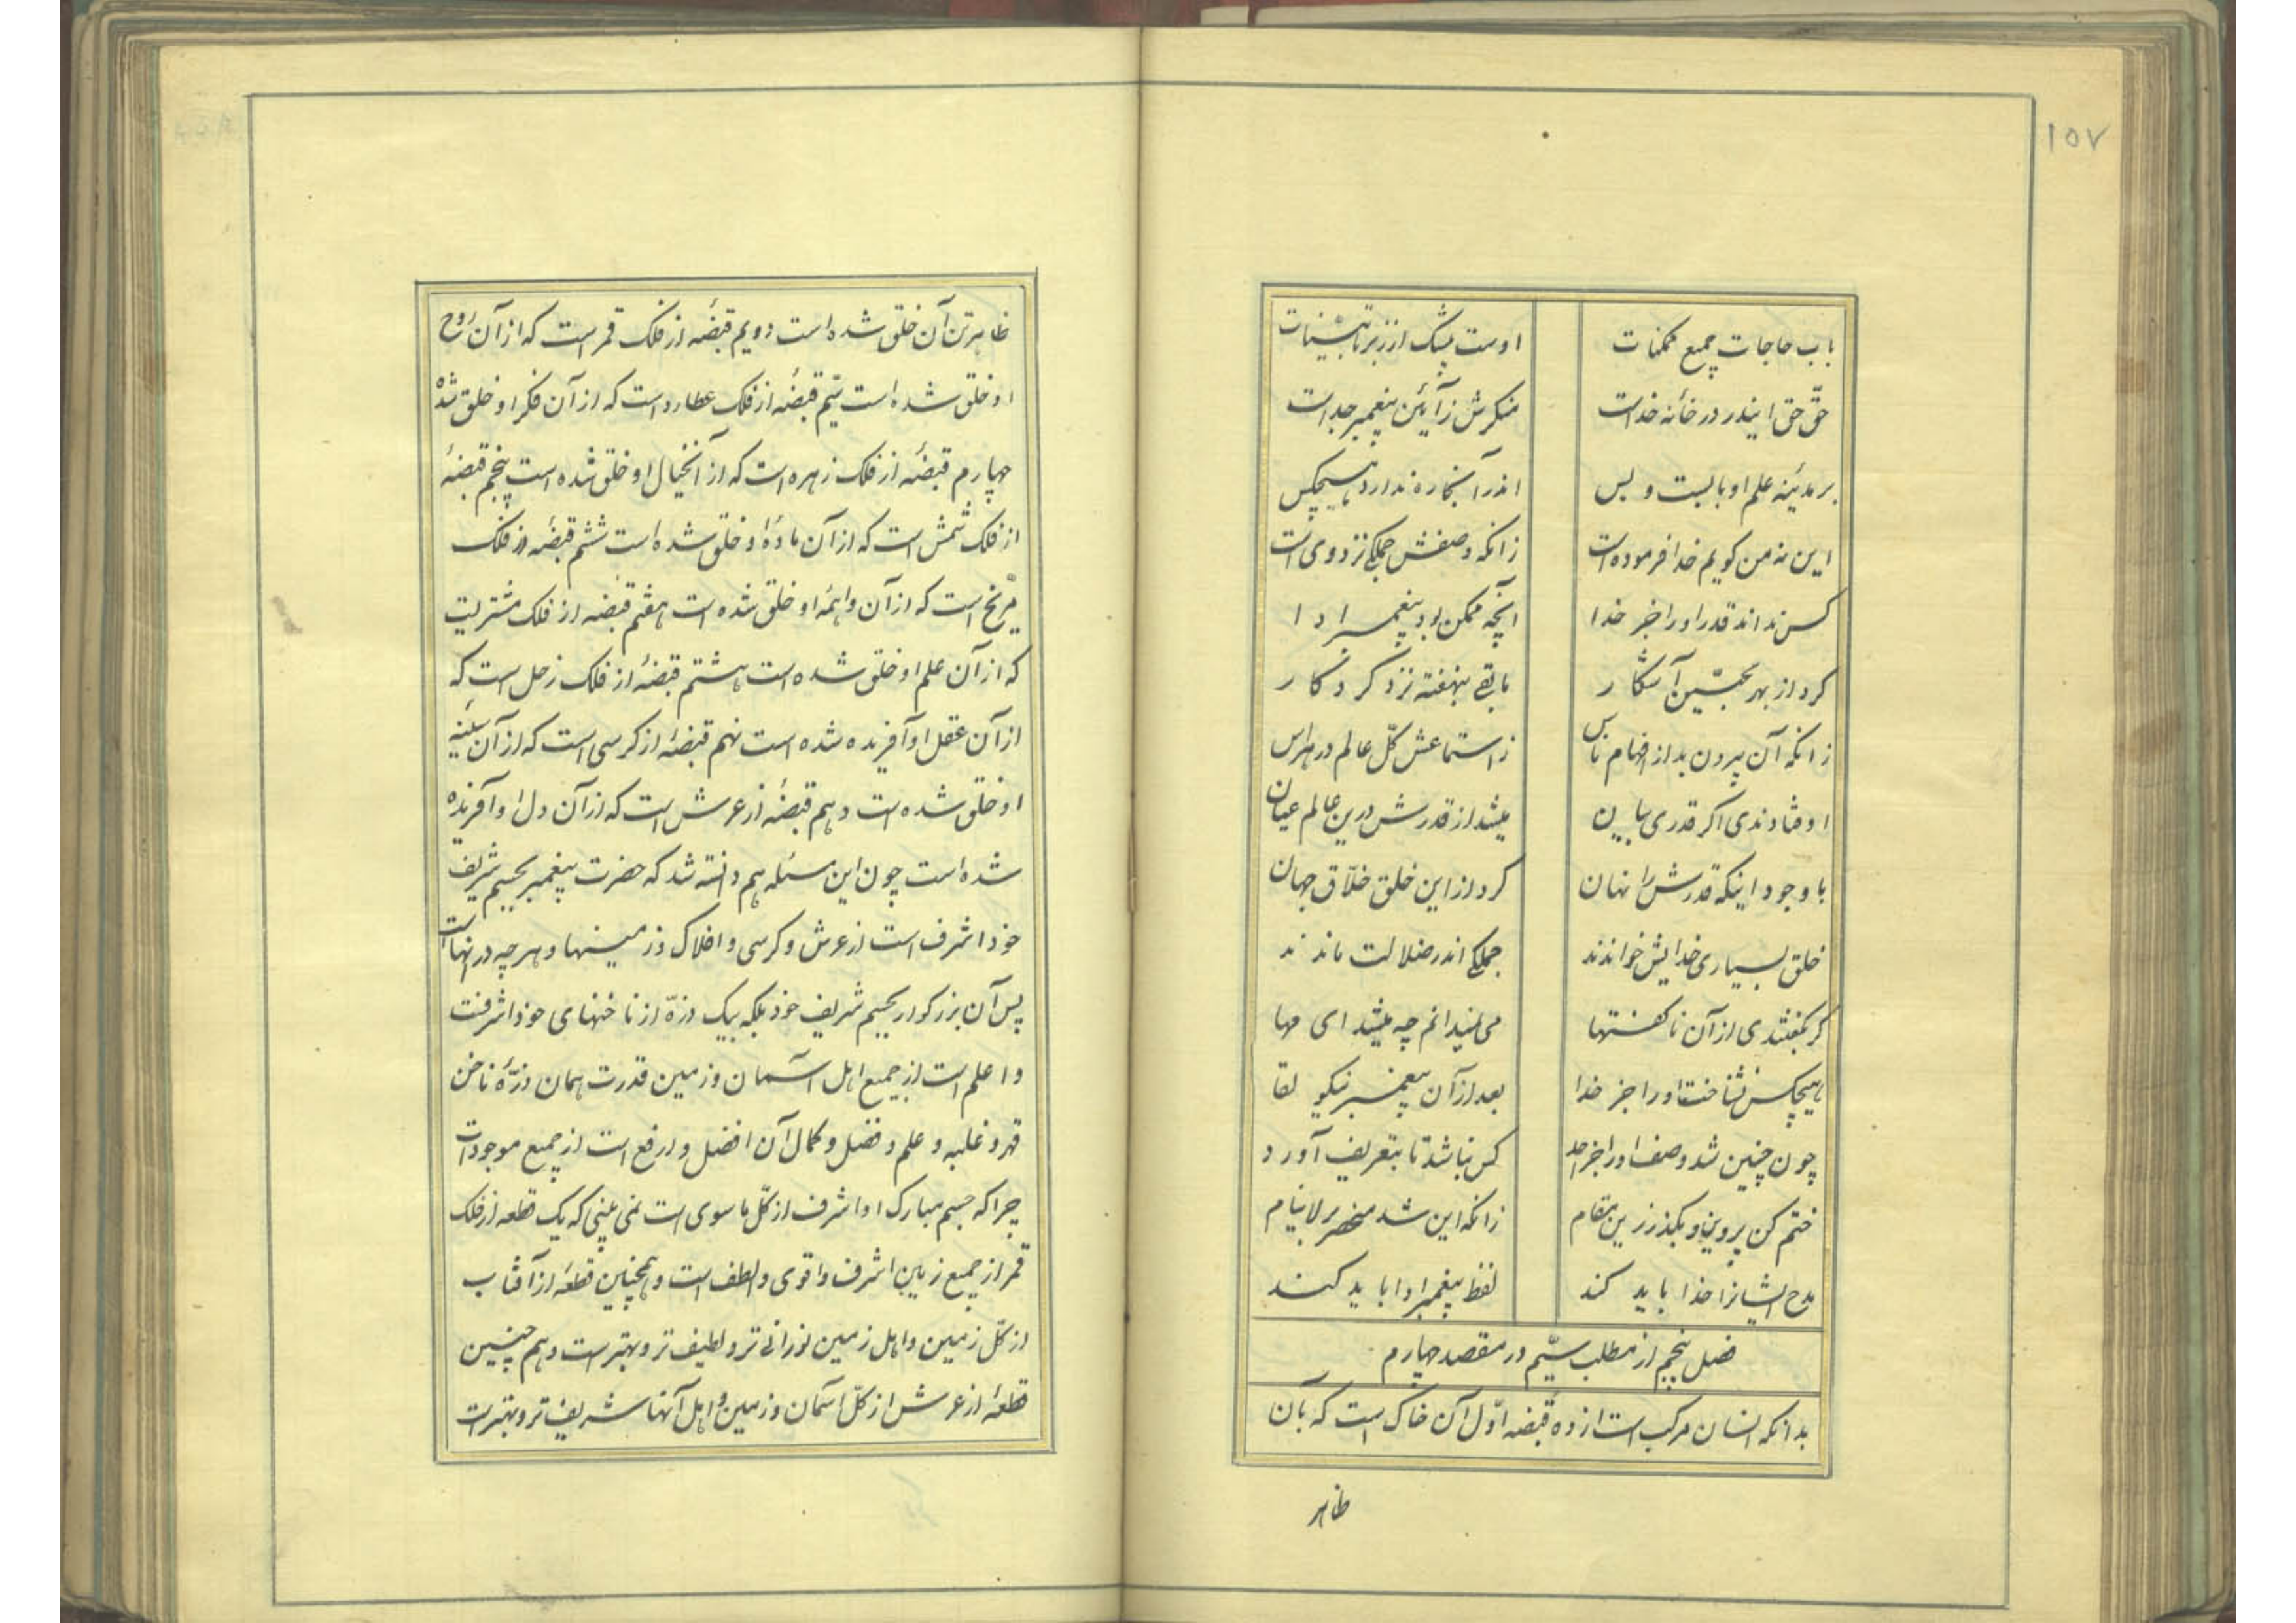 ۱۵۷
باب حاجات جمیع ممکنات اوست بیشک از زبر تا بینات
حقّ حق اینذر در خانه خداست منکرش ز آیین پیغمبر جداست
بر مدینه علم او بابست و بس اندر آنجا ره ندارد هیچکس
این نه من گویم خدا فرموده است زانکه وصفش جملگی نزد وی است
کس نداند قدر او را جز خدا آنچه ممکن بود پیغمبر ادا
کرد از بهر محبّین آشکار مابقی بنهفته نزد کردکار
زانکه آن بیرون بد از افهام ناس ز استماعش کلّ عالم در هراس
اوفتادندی اگر قدری بیان میشد از قدرش درین عالم عیان
با وجود اینکه قدرش را نهان کرد از این خلق خلّاق جهان
خلق بسیاری خدایش خواندند جملگی اندر ضلالت ماندند
گر بگفتندی از آن ناگفتها می ندانم چه میشد ای مها
هیچکس نشناخت او را جز خدا بعد از آن پیغمبر نیکو لقا
چون چنین شد وصف او را جز احد کس نباشد تا بتعریف آورد
ختم کن پروین و بگذر زین مقام زانکه این شد منحصر بر لاینام
مدح ایشانرا خدا باید کند لفظ پیغمبر ادا باید کند
فصل پنجم از مطلب سیّم در مقصد چهارم
بدانکه انسان مرکب است از ده قبضه اوّل آن خاک است که بآن
ظاهر
ظاهر تن آن خلق شده است دویم قبضهٔ از فلک قمر است که از آن روح
او خلق شده است سیّم قبضهٔ از فلک عطارد است که از آن فکر او خلق شده
چهارم قبضهٔ از فلک زهره است که از آن خیال او خلق شده است پنجم قبضهٔ
از فلک شمش است که از آن مادّهٔ او خلق شده است ششم قبضهٔ از فلک
مرّیخ است که از آن واهمهٔ او خلق شده است هفتم قبضه از فلک مشتریست
که از آن علم او خلق شده است هشتم قبضهٔ از فلک زحل است که
از آن عقل او آفریده شده است نهم قبضهٔ از کرسی است که از آن سینهٔ
او خلق شده است دهم قبضهٔ از عرش است که از آن دل او آفریده
شده است چون این مسئله هم دانسته شد که حضرت پیغمبر بجسم شریف
خود اشرف است از عرش و کرسی و افلاک و زمینها و هر چه در آنهاست
پس آن بزرکوار بجسم شریف خود بلکه بیک ذرّه از ناخنهای خود اشرفست
و اعلم است از جمیع اهل آسمان و زمین قدرت همان ذرّهٔ ناخن
قهر و غلبه و علم و فضل و کمال آن افضل و ارفع است از جمیع موجودات
چرا که جسم مبارک او اشرف از کلّ ما سوی است نمی بینی که یک قطعه از فلک
قمر از جمیع زمین اشرف و اقوی و الطف است و همچنین قطعهٔ از آفتاب
از کلّ زمین و اهل زمین نورانی تر و لطیف تر و بهتر است و هم چنین
قطعهٔ از عرش از کلّ آسمان و زمین و اهل آنها شریف تر و بهتر است